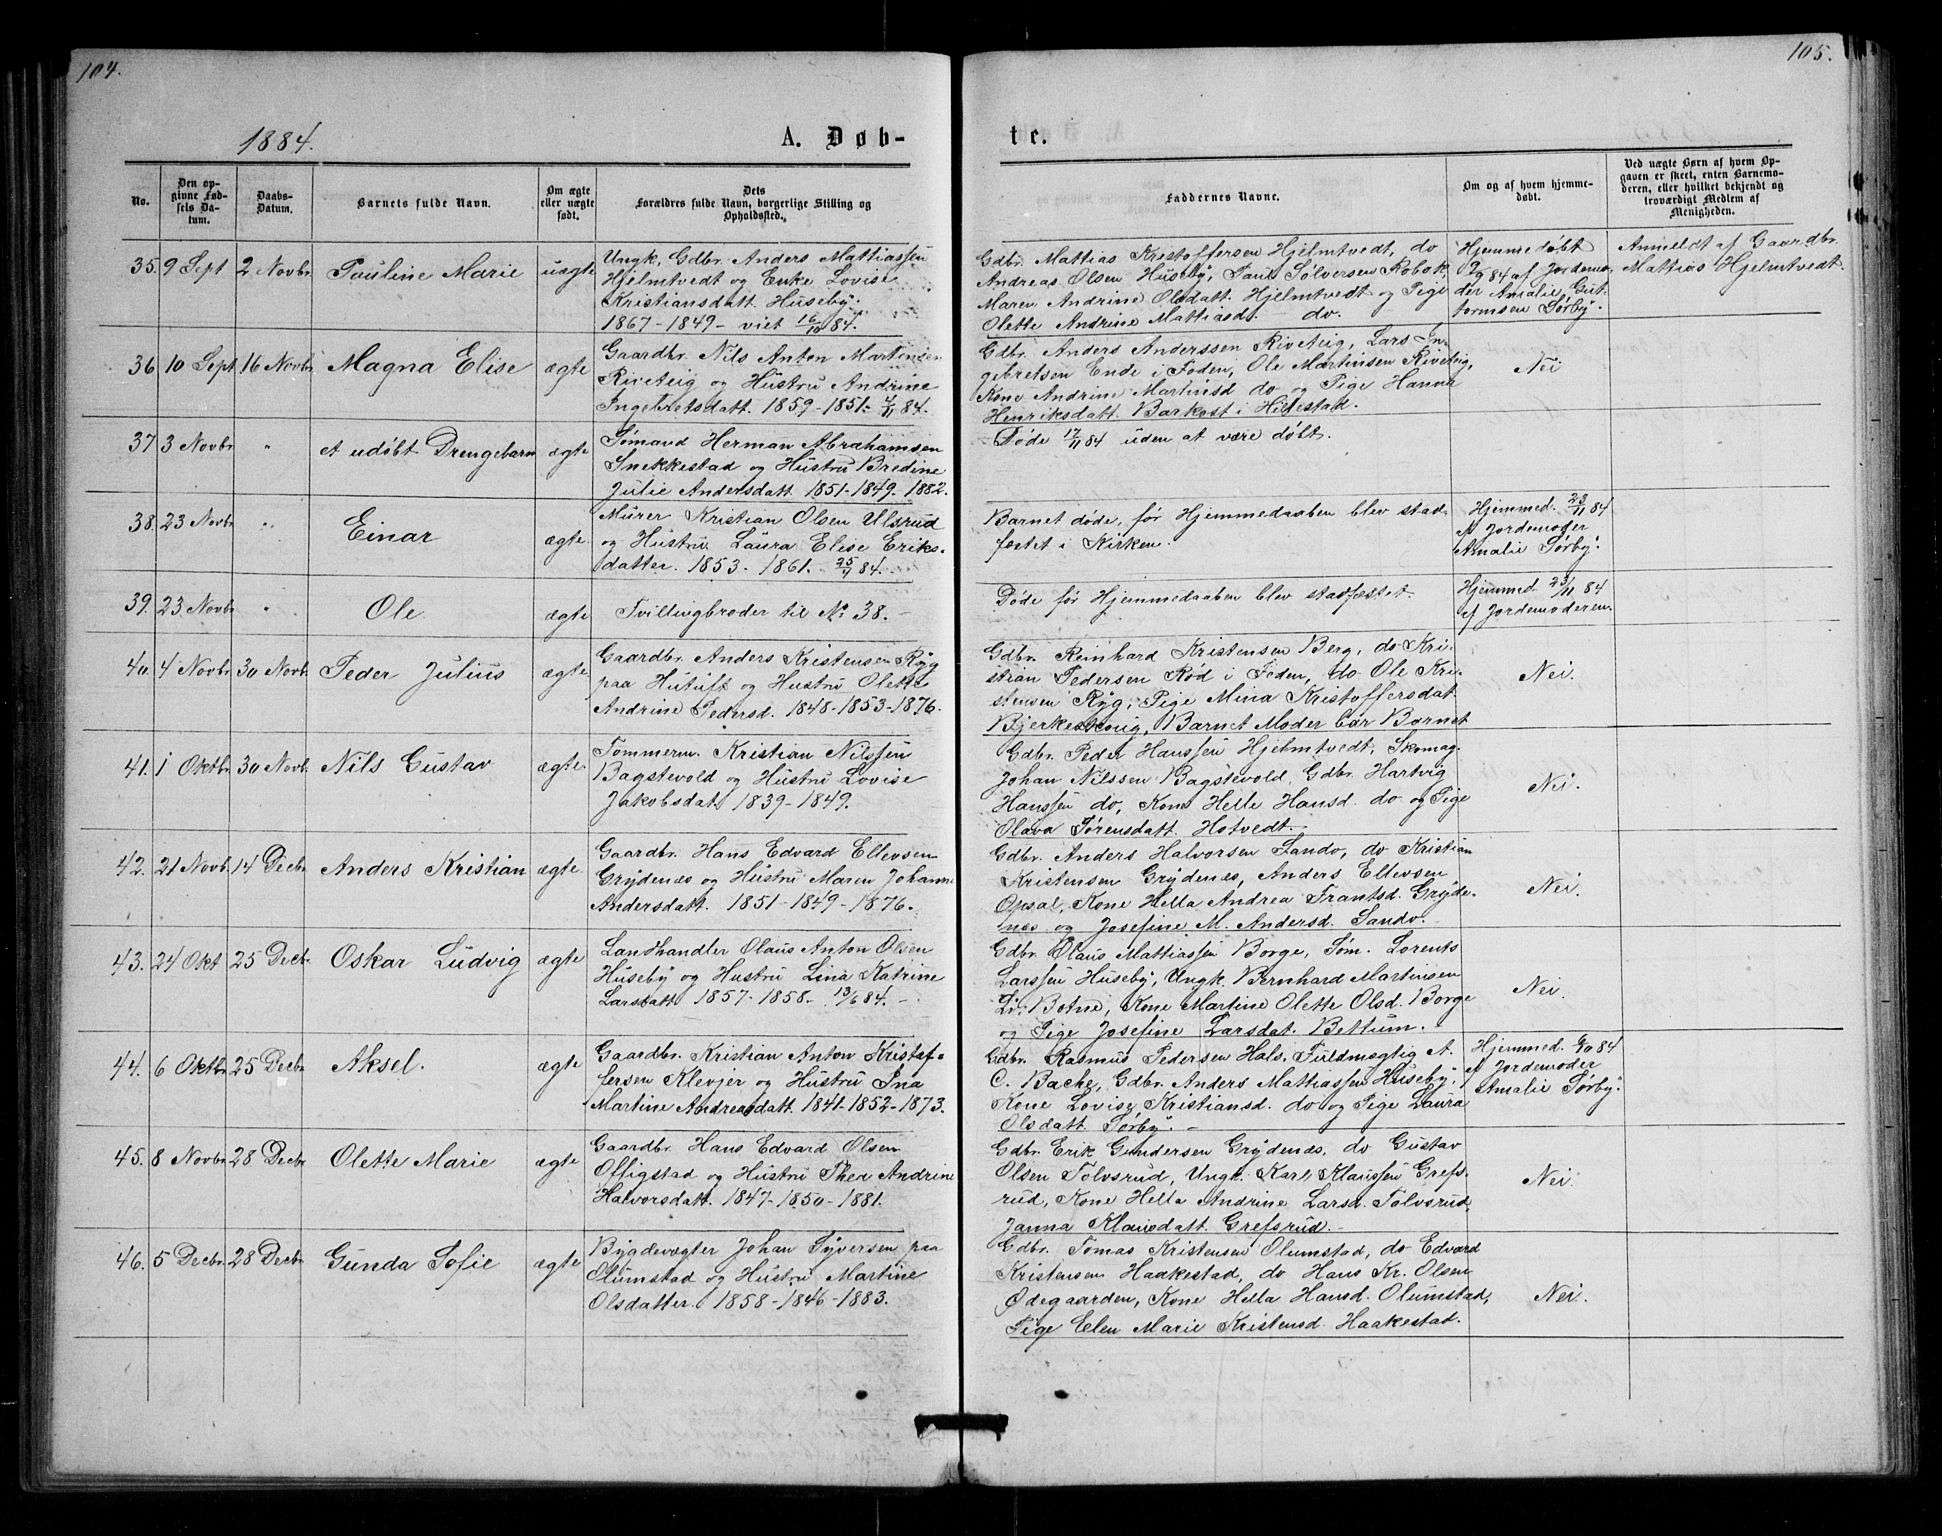 104.
1884.
A. Døb-
No.
Den op-
givne Fød-
sels Da-
tum.
Daabs-
Datum.
Barnets fulde Navn.
Om ægte
eller uægte
født.
Dets
Forældres fulde Navn, borgerlige Stilling og
Opholdssted.
35. 9 Sept 2 Novbr. Pauline Marie uægte
Ungk, Gdbr. Anders Mattiassen
Hjelmtvedt og Enke Lovise
Kristiansdatt. Huseby.
1867 - 1849 - viet 16/10 84.
36 10 Sept 16 Novbr Magna Elise ægte
Gaardbr. Nils Anton Martinsen
Riveteig og Hustru Andrine
Ingebretsdatt. 1859 - 1851 - 4/11 84.
37 3 Novbr " et udøbt Drengebarn ægte
Sømand Herman Abrahamsen
Snekkestad og Hustru Bredine
Julie Andersdatt 1851 - 1849. 1882.
38. 23 Novbr " Einar ægte
Murer Kristian Olsen Ulsrud
og Hustru Laura Elise Eriks-
datter. 1853. 1861. 84.
39. 23 Novbr " Ole ægte
Tvillingbroder til No 38.
40. 4 Novbr 30 Novbr. Peder Julius ægte
Gaardbr. Anders Kristensen Ryg
paa Hutuft og Hustru Olette
Andrine Pedersd. 1848 - 1853 - 1876.
41. 1 Oktbr 30 Novb. Nils Gustav ægte
Tømmerm. Kristian Nilssen
Bagstevold og Hustru Lovise
Jakobsdat. 1839 - 1849.
42. 21 Novb. 14 Decbr Anders Kristian ægte
Gaardbr. Hans Edvard Ellevsen
Grydenæs og Hustru Maren Johanne
Andersdatt. 1851 - 1849 - 1876.
43. 24 Okt 25 Decbr. Oskar Ludvig ægte
Landhandler Olaus Anton Olsen
Huseby og Hustru Lina Katrine
Larsdatt 1857 - 1858 - 13/6 84. -
44. 6 Oktbr 25 Decbr Aksel. ægte
Gaardbr. Kristian Anton Kristof-
fersen Klevjer og Hustru Ina
Martine Andreasdatt. 1841 - 1852 - 1873.
45. 8 Novbr 28 Decbr Olette Marie ægte
Gaardbr. Hans Edvard Olsen
Offigstad og Hustru Thea Andrine
Halvorsdatt. 1847 - 1850 - 1881.
46. 5 Decbr. 28 Decbr Gunda Sofie ægte
Bygdevægter Johan Syversen paa
Olumstad og Hustru Martine
Olsdatter. 1858 - 1846 - 1883.
105.
te.
Faddernes Navne.
Om og af hvem hjemme-
døbt.
Ved uægte Børn af hvem Op-
gaven er skeet, enten Barnemo-
deren, eller hvilket bekjendt og
troværdigt Medlem af
Menigheden.
Gdbr. Mattias Kristoffersen Hjelmtvedt, do
Andreas Olsen Huseby, Paul Sølversen Robok,
Maren Andrine Olsdatt. Hjelmtvedt og Pige
Olette Andrine Mattiasd. do.
Hjemmedøbt
9/9 84 af Jordemo-
der Amalie Gut-
tormsen Sørby.
Anmeldt af Gaardbr.
Mattias Hjelmtvedt.
Gdbr. Anders Anderssen Riveteig, Lars In-
gebretsen Ende i Foden, Ole Martinsen Riveteig,
Kone Andrine Martinsd do og Pige Hanna
Henriksdatt. Barkost i Hillestad.
Nei
Døde 17/11 84 uden at være døbt.
Barnet døde, før Hjemmedaaben blev stad-
fæstet i Kirken.
Hjemmed. 23/11 84
af Jordemoder
Amalie Sørby.
Døde før Hjemmedaaben blev stadfæstet.
Hjemmed. 23/11 84
af Jordemoderen.
Gdbr. Reinhard Kristensen Berg, do Kri-
stian Pedersen Rød i Foden, do Ole Kri-
stensen Ryg, Pige Mina Kristoffersdat.
Bjerkeskoug, Barnet Moder bar Barnet
Nei.
Gdbr. Peder Hanssen Hjelmtvedt, Skomag.
Johan Nilssen Bagstevold, Gdbr. Hartvig
Hanssen do, Kone Helle Hansd. do og Pige
Olava Sørensdatt. Hotvedt.
Nei.
Gdbr. Anders Halvorsen Sando, do Kristian
Kristensen Grydenæs, Anders Ellevsen
Opsal, Kone Hella Andrea Frantsd. Gryde-
næs og Josefine M. Andersd. Sando.
Nei.
Gdbr. Olaus Mattiassen Borge, Søm. Lorents
Larssen Huseby, Ungk. Bernhard Martinsen
Botne, Kone Martine Olette Olsd. Borge
og Pige Josefine Larsdat. Bettum.
Nei.
Gdbr. Rasmus Pedersen Hals, Fuldmægtig A.
C. Bache, Gdbr. Anders Mattiassen Huseby,
Kone Lovise Kristiansd. do og Pige Laura
Olsdatt Sørby. -
Hjemmed. 6/10 84
af Jordemoder
Amalie Sørby.
Gdbr. Erik Gundersen Grydenæs, do Gustav
Olsen Tolvsrud, Ungk. Karl Klaussen Grefs-
rud, Kone Hella Andrine Larsd. Tolvsrud,
Janna Klausdatt. Grefsrud.
Nei.
Gdbr. Tomas Kristensen Olumstad, do Edvard
Kristensen Haakestad, do Hans Kr. Olsen
Ødegaarden, Kone Hella Hansd. Olumstad,
Pige Elen Marie Kristensd. Haakestad.
Nei.